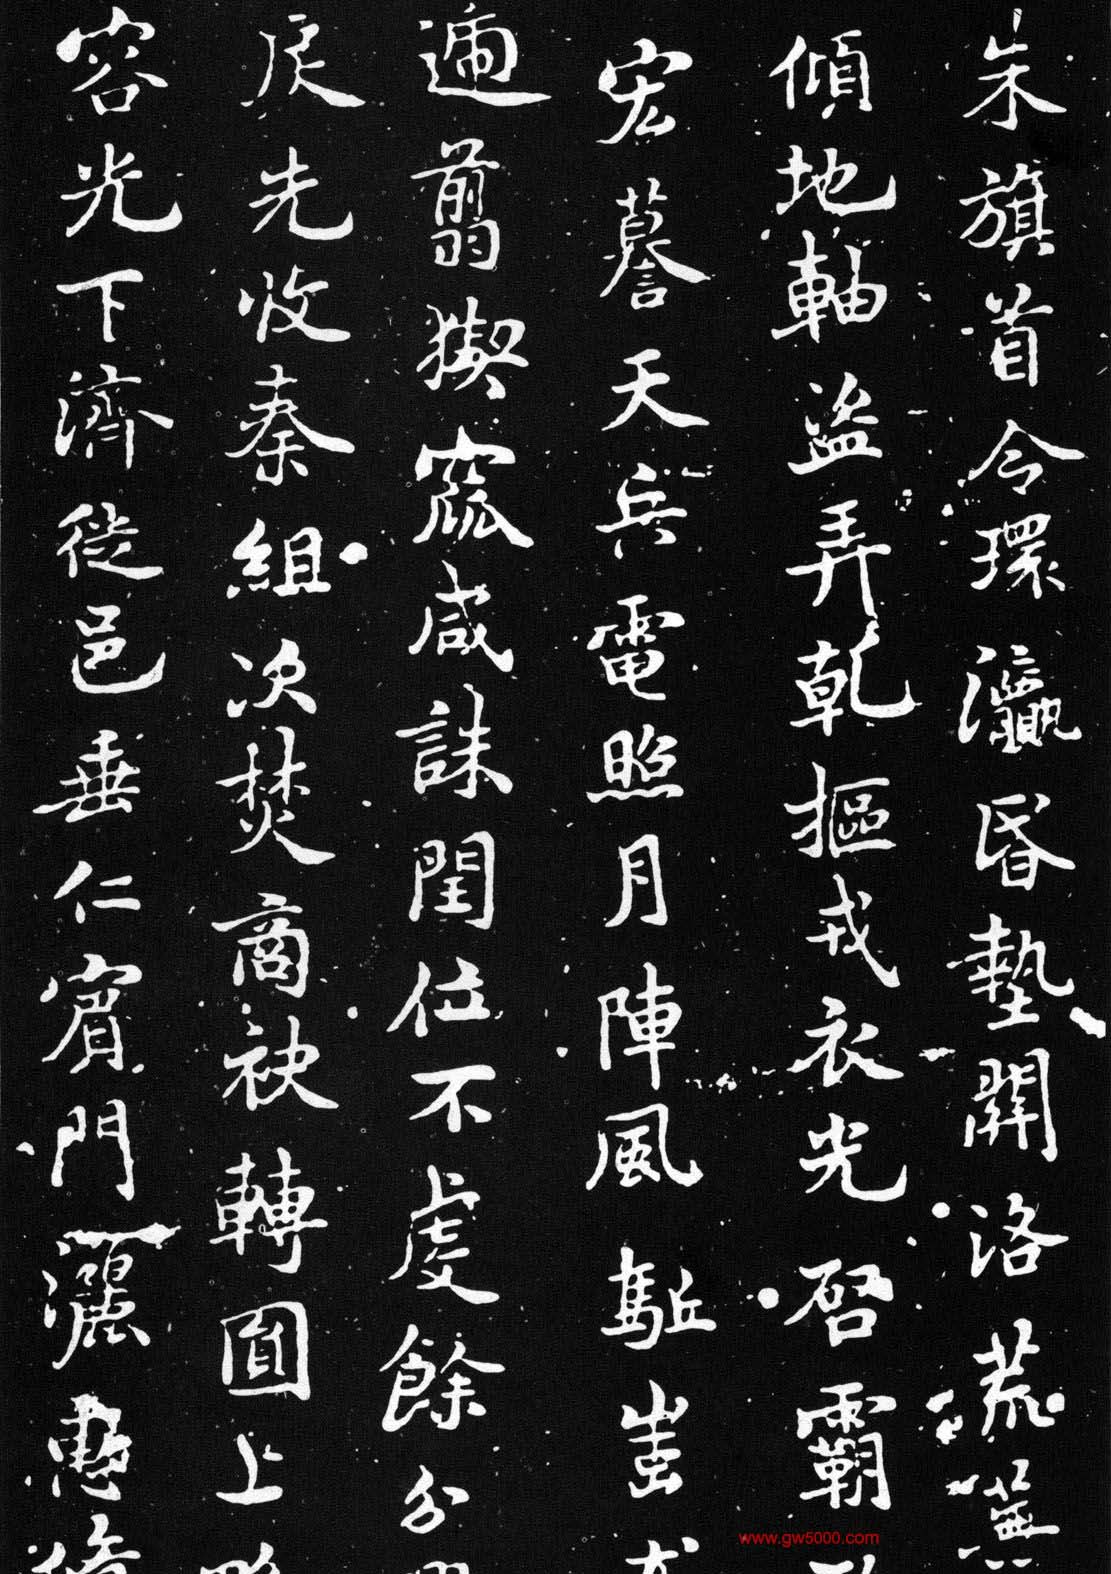 朱旗首令環瀛昏墊關洛荒蕪
傾地軸盜弄乾樞戎衣光啓霸
宏謩天兵電照月陣風駈豈
遄翦猰窳咸誅閏位不虔餘分
戾先收秦組次焚商袂轉圓上
容光下濟徙邑垂仁賓門灑惠
www.gw5000.com